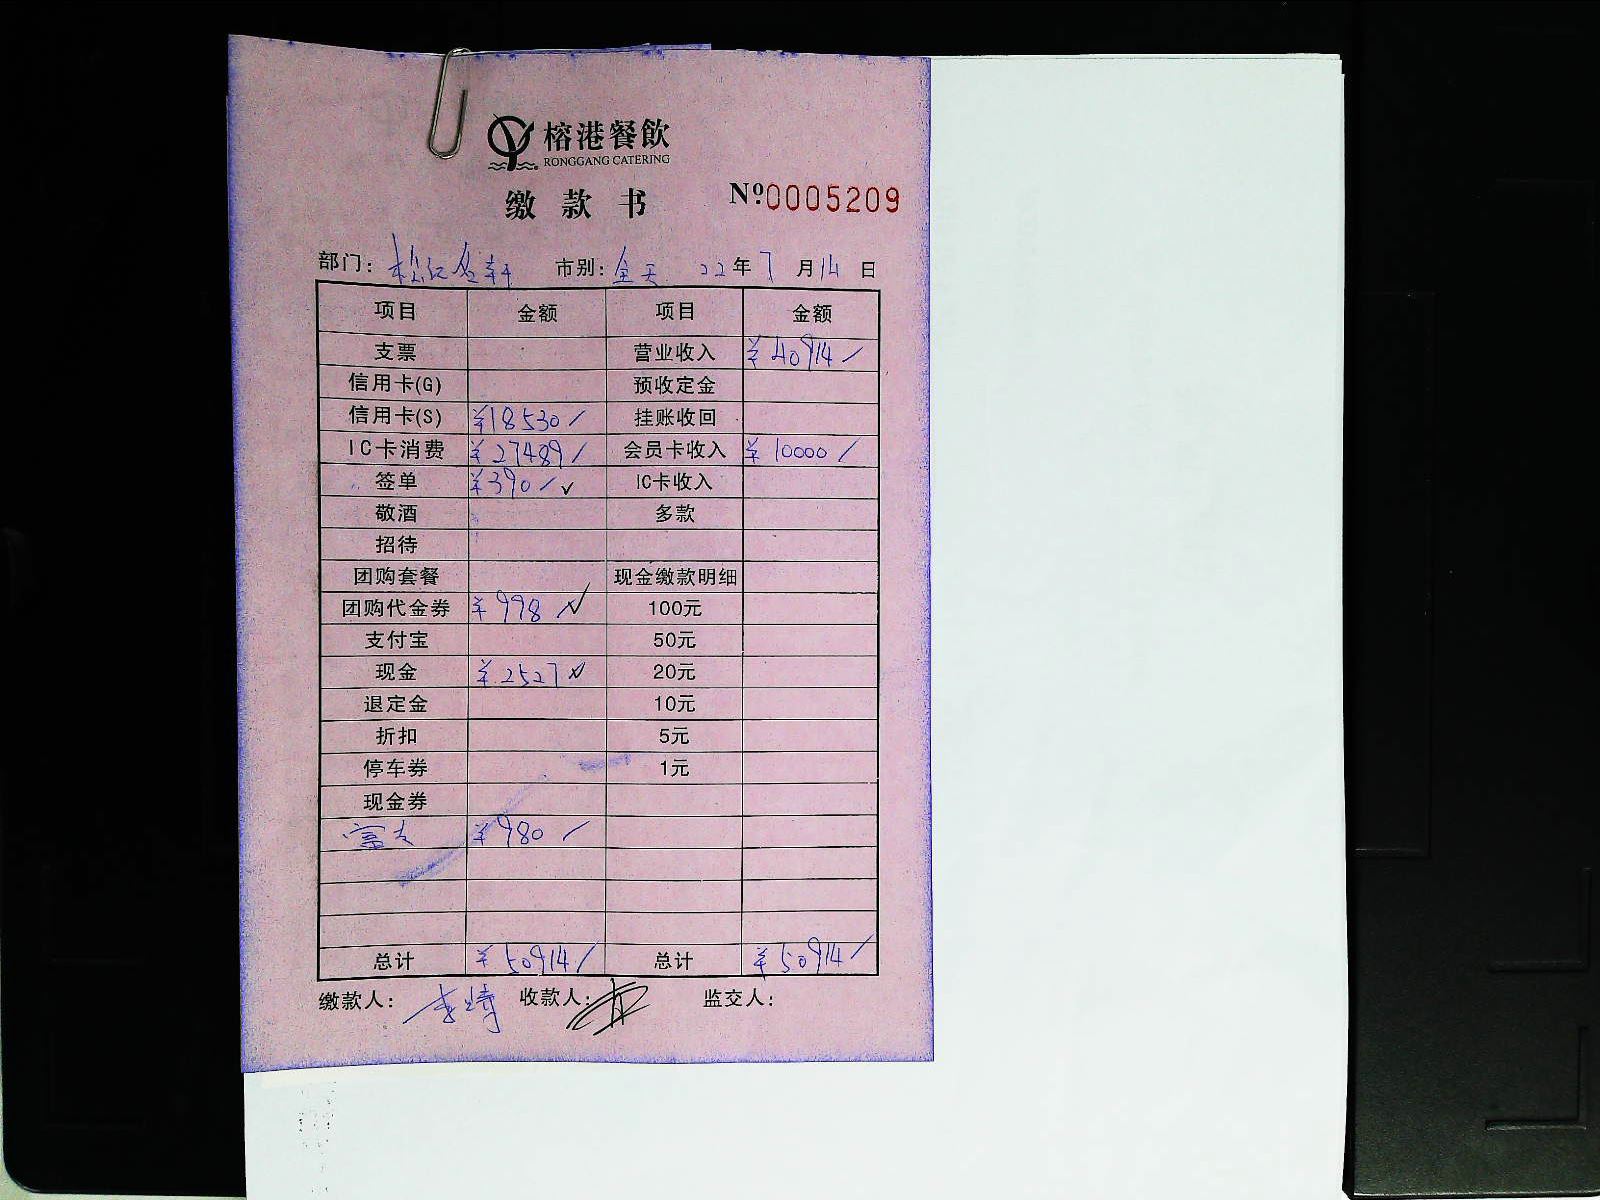 榕港餐飲
RONGGANG CATERING
缴款书 Nº0005209
部门：松江名轩 市别：全天 22年7月14日
项目 金额 项目 金额
支票 营业收入 ¥40914
信用卡(G) 预收定金
信用卡(S) ¥18530 挂账收回
IC卡消费 ¥27489 会员卡收入 ¥10000
签单 ¥390 IC卡收入
敬酒 多款
招待
团购套餐 现金缴款明细
团购代金券 ¥998 100元
支付宝 50元
现金 ¥2527 20元
退定金 10元
折扣 5元
停车券 1元
现金券
¥980
总计 ¥50914 总计 ¥50914
缴款人： 收款人： 监交人：